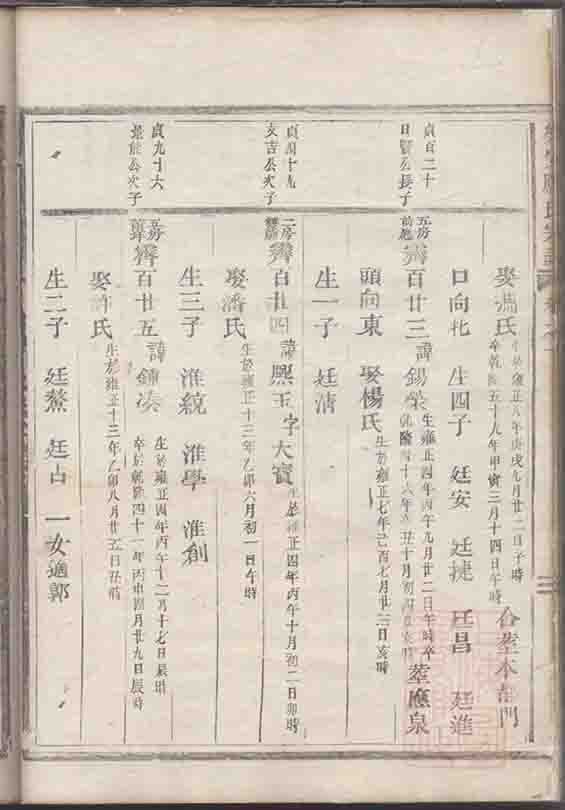 娶潘氏 生於雍正八年庚戌九月廿二日子時 卒乾隆五十九年甲寅三月十四日午時 合塟本部門
日向 生四子 廷安 廷捷 廷昌 廷進
貞百二十
日賢公長子
五房 百廿三 諱錫榮 生雍正四年丙午九月廿二日午時卒 乾隆四十六年辛丑十月初 亥時 塟應泉
頭向東 娶楊氏 生於雍正七年己酉七月廿二日亥時
生一子 廷清
貞四十九
友吉公次子
二房 百廿四 諱熙玉 字大寶 生於雍正四年丙午十月初二日卯時
娶潘氏 生於雍正十三年乙卯六月初一日午時
生三子 淮統 淮學 淮創
貞九十六
公次子
百廿五 諱鍾湊 生於雍正四年丙午十二月十七日辰時 卒於乾隆四十一年丙申四月廿九日辰時
娶許氏 生於雍正十三年乙卯八月廿五日丑時
生二子 廷鰲 廷占 一女適郭